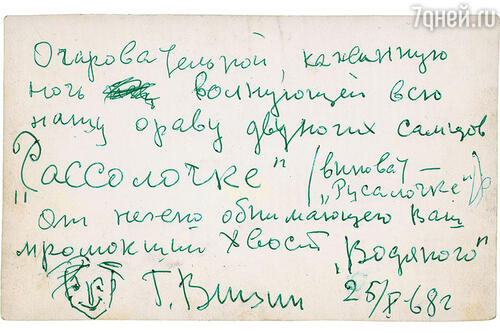 7дней.ru
Очаровательной, кажинную
ночь волнующей всю
нашу ораву двуногих самцов
„Рассолочке"
(виноват –
„Русалочке")
От нежно обнимающего Ваш
промокший хвост „Водяного"
Г. Вицин 25/X-68г